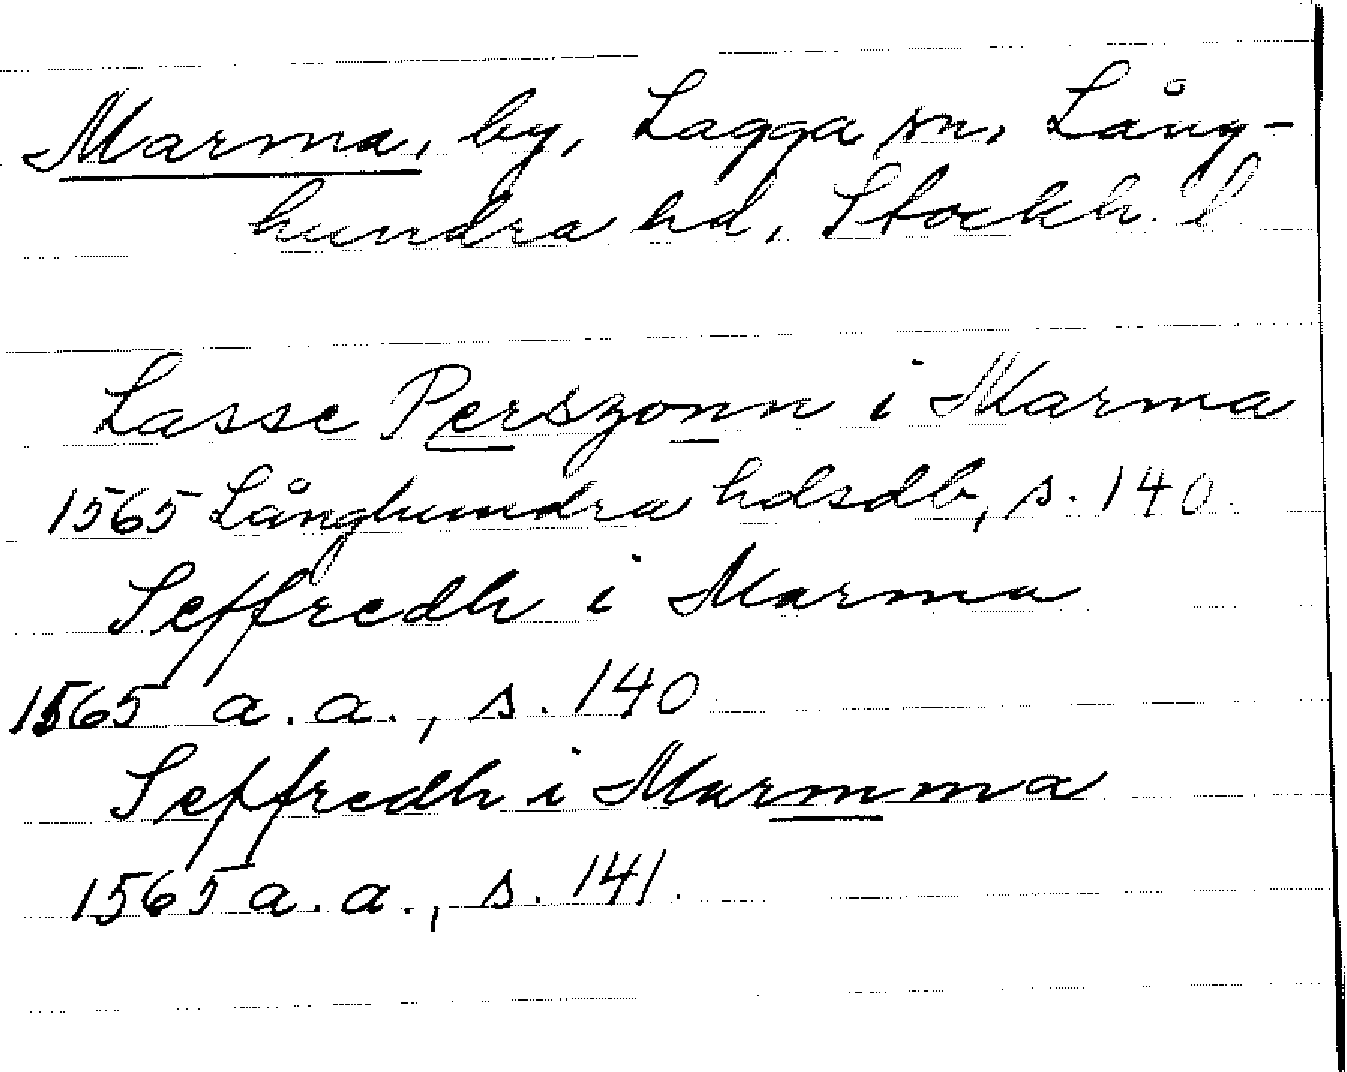 Marma, by, Lagga sn, Lång-
hundra hd, Stockh. l
Lasse Perszonn i Marma
1565 Långhundra hdsdb, s. 140.
Seffredh i Marma
1565 a.a., s. 140
Seffredh i Marmma
1565 a.a., s. 141.